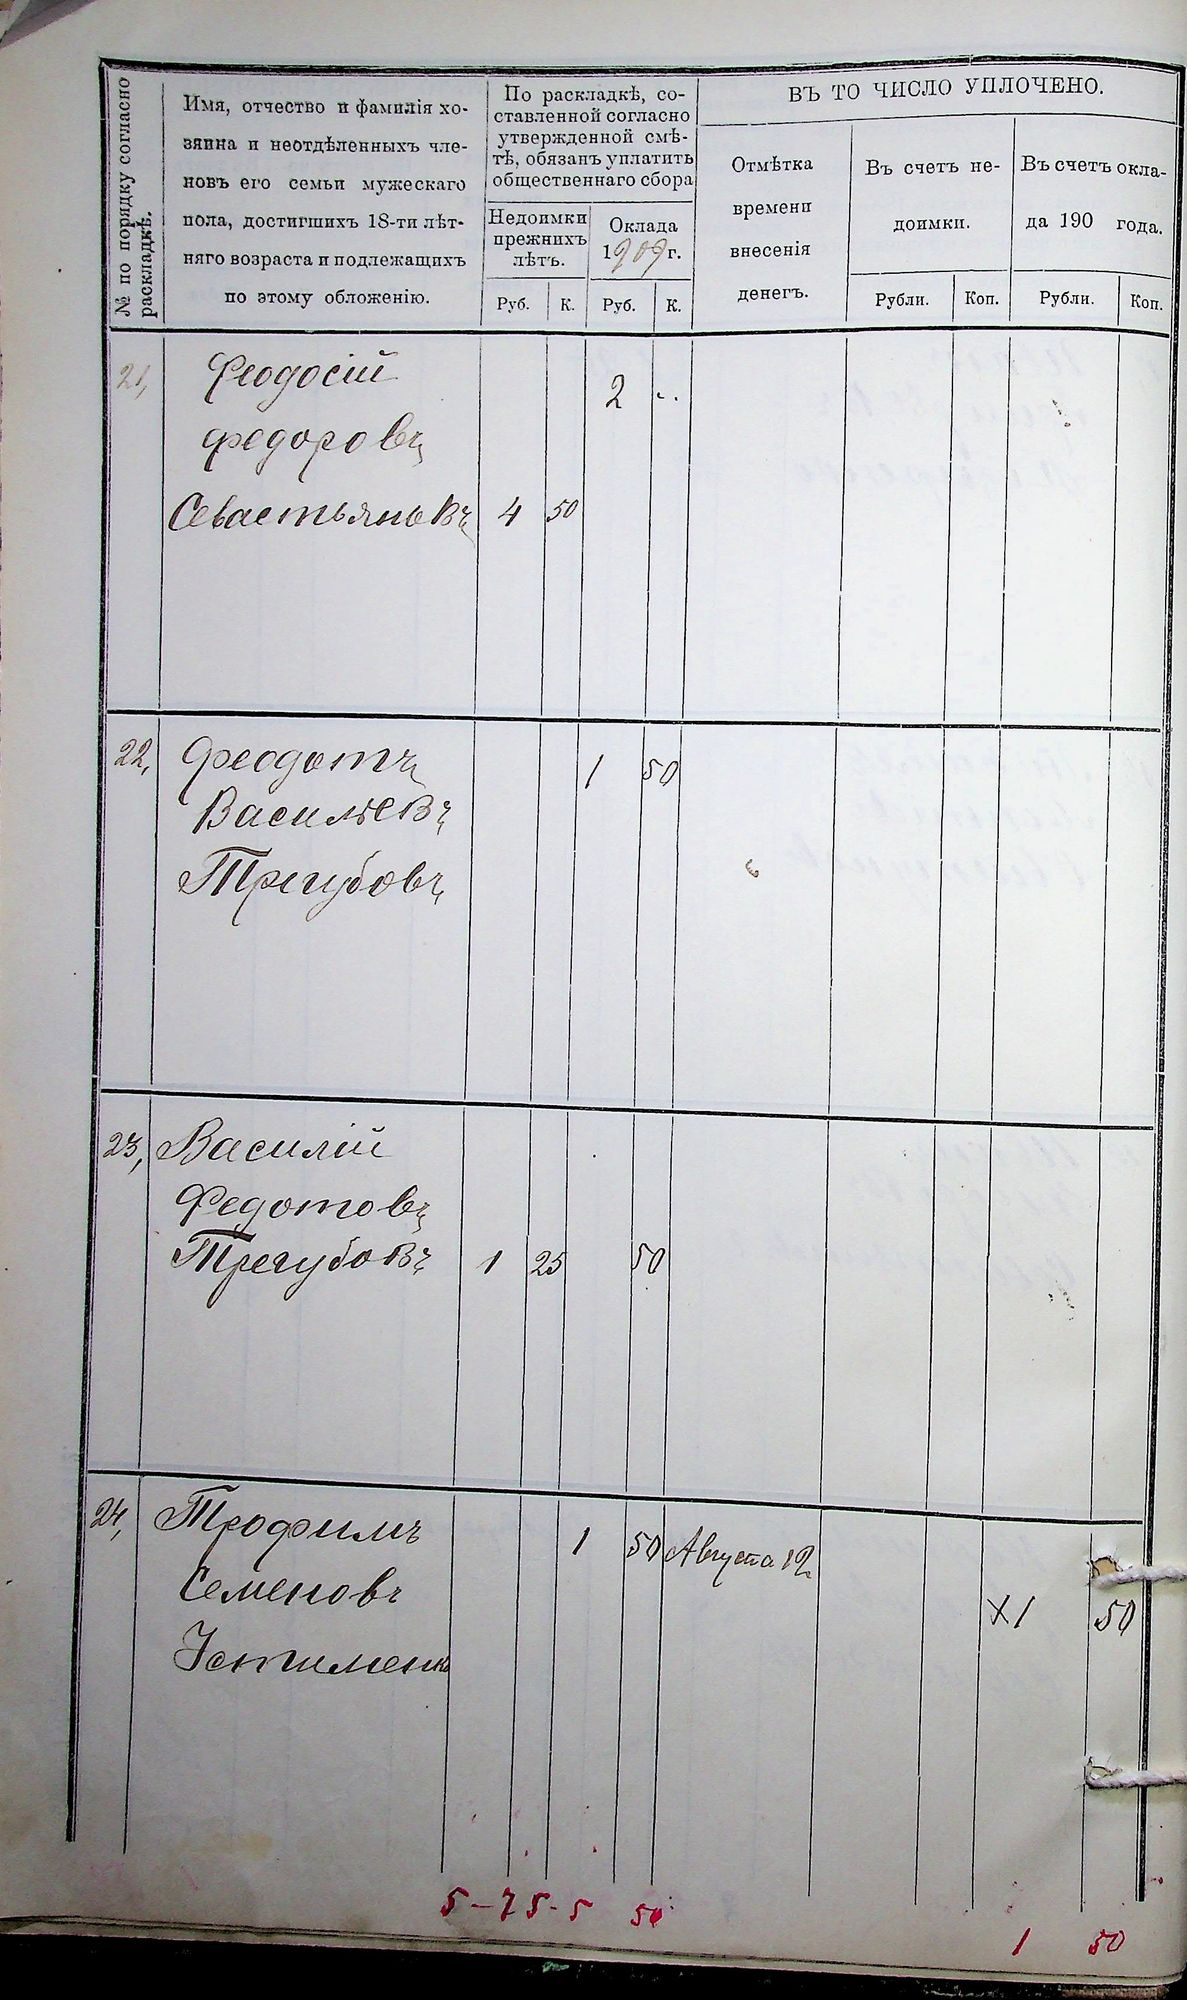 № по порядку согласно
раскладкѣ.
Имя, отчество и фамилія хо-
зяина и неотдѣленныхъ чле-
новъ его семьи мужескаго
пола, достигшихъ 18-ти лѣт-
няго возраста и подлежащихъ
по этому обложенію.
По раскладкѣ, со-
ставленной согласно
утвержденной смѣ-
тѣ, обязанъ уплатить
общественнаго сбора
Недоимки
прежнихъ
лѣтъ.
Оклада
1909 г.
Руб. К. Руб. К.
ВЪ ТО ЧИСЛО УПЛОЧЕНО.
Отмѣтка
времени
внесенія
денегъ.
Въ счетъ не-
доимки.
Въ счетъ окла-
да 190 года.
Рубли. Коп. Рубли. Коп.
21, Феодосій 2 ..
Федоровъ
Севастьяновъ 4 50
22, Феодотъ 1 50
Васильевъ
Трегубовъ
23, Василій
Федотовъ
Трегубовъ 1 25 50
24, Трофимъ 1 50 Августа 12
Семеновъ X 1 50
Устименко
5 - 75 - 5 50
1 50